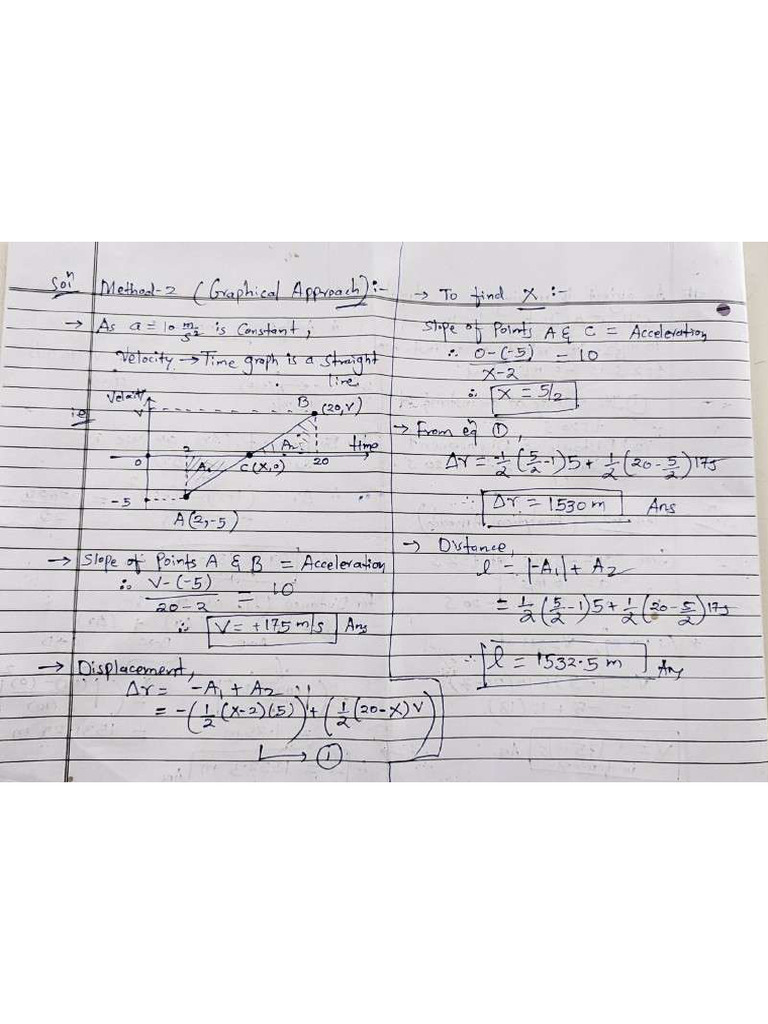 Solⁿ Method-2 (Graphical Approach):-
→ As a = 10 m/s² is Constant,
Velocity → Time graph is a straight
line
i.e
Velocity
V
B (20, V)
2
A₂
time
0
A₁
C(X,0)
20
-5
A(2,-5)
→ Slope of Points A & B = Acceleration
∴ V-(-5) / 20-2 = 10
∴ V = +175 m/s Ans
→ Displacement,
Δr = -A₁ + A₂
= -(1/2 (X-2)(5)) + (1/2 (20-X) V)
→ ①
→ To find X :-
Slope of Points A & C = Acceleration
∴ 0-(-5) / X-2 = 10
∴ X = 5/2
→ From eqⁿ ①,
Δr = -1/2 (5/2 -1) 5 + 1/2 (20 - 5/2) 175
∴ Δr = 1530 m Ans
→ Distance,
l = |-A₁| + A₂
= 1/2 (5/2 -1) 5 + 1/2 (20 - 5/2) 175
∴ l = 1532.5 m Ans